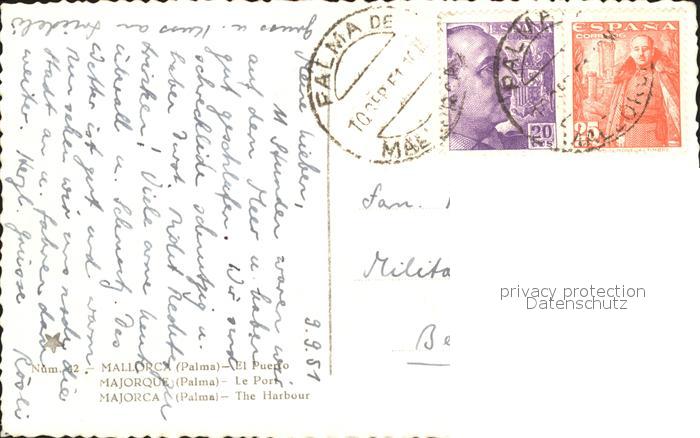 Gruss u. Kuss an Friedeli
9.9.51
Meine Lieben,
11 Stunden waren wir
auf dem Meer u. haben
gut geschlafen. Wir sind
schmutzig u.
haben Durst.
trinken! Viele arme Leute
überall u. Schmutz. Das
Wetter ist gut und warm
Nun sehen wir uns noch die
Stadt an u. fahren dann
weiter. Herzl. Grüsse Rösli
PALMA DE MALLORCA
10 SEP 51
20 CTS
PALMA MALLORCA
ESPAÑA
CORREOS
25
Fam.
Milita
Be
privacy protection
Datenschutz
Núm. 12 – MALLORCA (Palma) – El Puerto
MAJORQUE (Palma) – Le Port
MAJORCA (Palma) – The Harbour